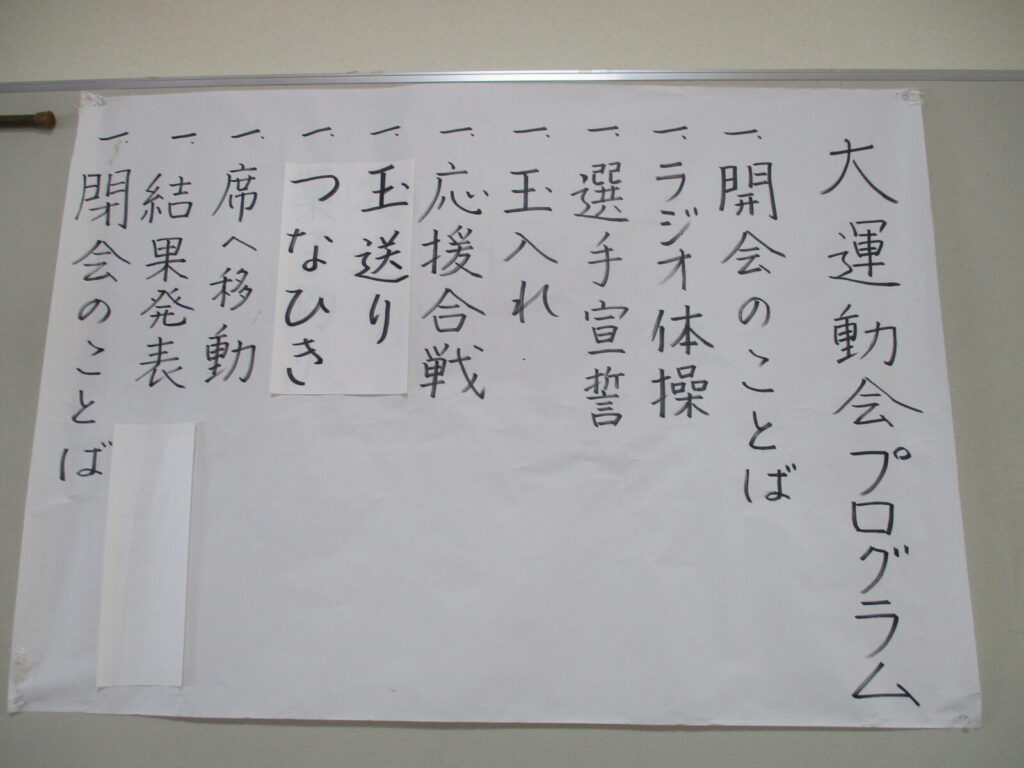 大運動会プログラム
一、開会のことば
一、ラジオ体操
一、選手宣誓
一、玉入れ
一、応援合戦
一、玉送り
一、つなひき
一、席へ移動
一、結果発表
一、閉会のことば